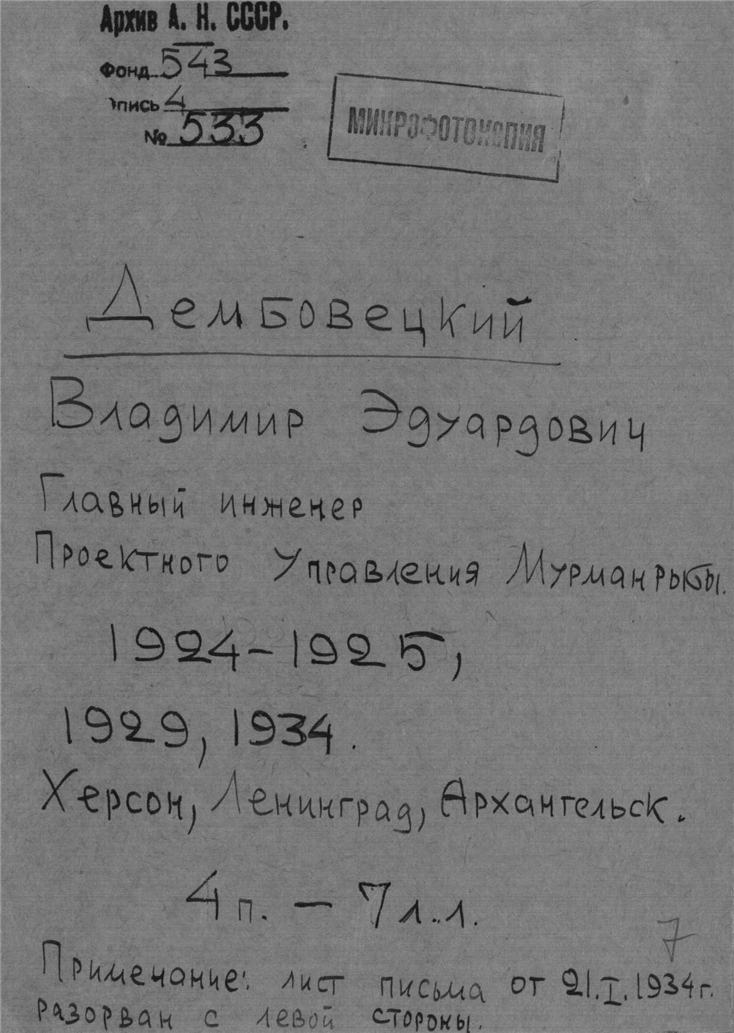 Архив А. Н. СССР.
Фонд 543
опись 4
№ 533
МИКРОФОТОКОПИЯ
Дембовецкий
Владимир Эдуардович
Главный инженер
Проектного Управления Мурманрыбы.
1924-1925,
1929, 1934.
Херсон, Ленинград, Архангельск.
4 п. — 7 л.л.
7
Примечание: лист письма от 21.I.1934г.
разорван с левой стороны.